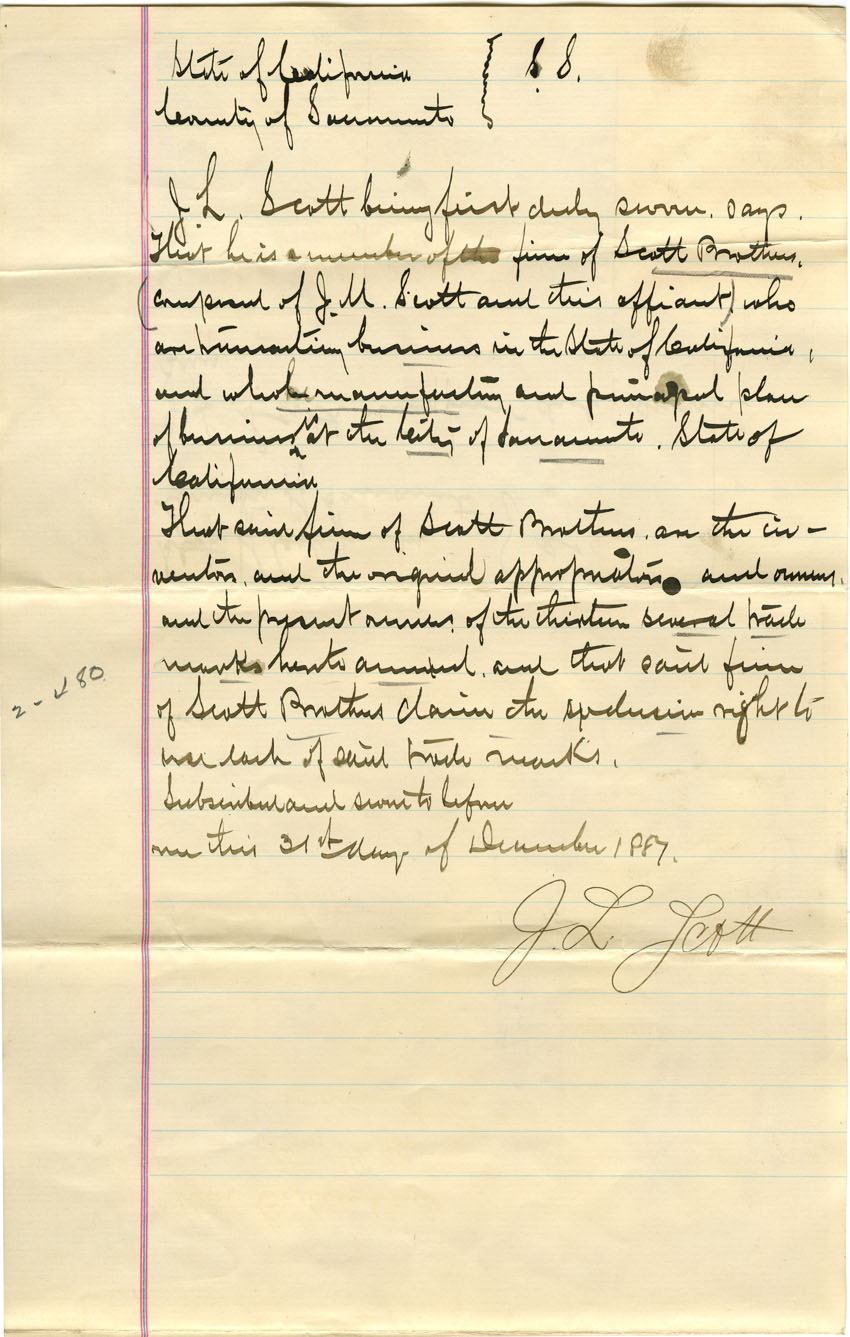 State of California
County of Sacramento } S. S.
J. L. Scott being first duly sworn. says.
That he is a member of the firm of Scott Brothers.
(composed of J. M. Scott and this affiant) who
are transacting business in the State of California,
and whose manufactury and principal place
of business is at the City of Sacramento. State of
California
That said firm of Scott Brothers. are the in-
ventors. and the original appropriators and owners.
and the present owners. of the thirteen several trade
marks hereto annexed. and that said firm
of Scott Brothers claim the exclusive right to
use each of said trade marks.
Subscribed and sworn to before
me this 31st day of December 1887.
J. L. Scott
80